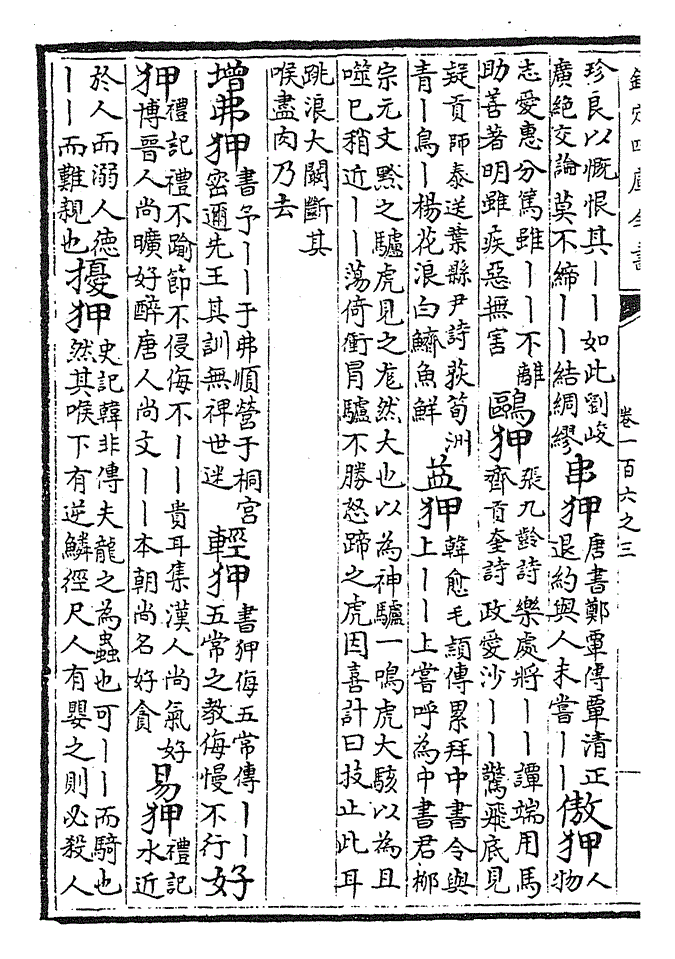 欽定四庫全書
卷一百六之三
珍良以慨恨其丨丨如此劉峻
廣絶交論莫不締丨丨結綢繆
串狎
唐書鄭覃傳覃清正
退約與人未嘗丨丨
傲狎
人
物
志愛惠分篤雖丨丨不離
助善著明雖疾惡無害
鷗狎
張九齡詩樂處將丨丨譚端用馬
齊百奎詩政愛沙丨丨驚飛底見
疑貢師泰送葉縣尹詩荻筍洲
青丨鳥丨楊花浪白鱭魚鮮
益狎
韓愈毛頴傳累拜中書令與
上丨丨上嘗呼為中書君栁
宗元文黔之驢虎見之尨然大也以為神驢一鳴虎大駭以為且
噬已稍近丨丨蕩倚衝冒驢不勝怒蹄之虎因喜計曰技止此耳
跳浪大㘚斷其
喉盡肉乃去
增弗狎
書予丨丨于弗順營于桐宫
密邇先王其訓無裨世迷
輕狎
書狎侮五常傳丨丨
五常之教侮慢不行
好
狎
禮記禮不踰節不侵侮不丨丨貴耳集漢人尚氣好
博晉人尚曠好醉唐人尚文丨丨本朝尚名好貪
易狎
禮記
水近
於人而溺人徳
丨丨而難親也
擾狎
史記韓非傳夫龍之為蟲也可丨丨而騎也
然其喉下有逆鱗徑尺人有嬰之則必殺人